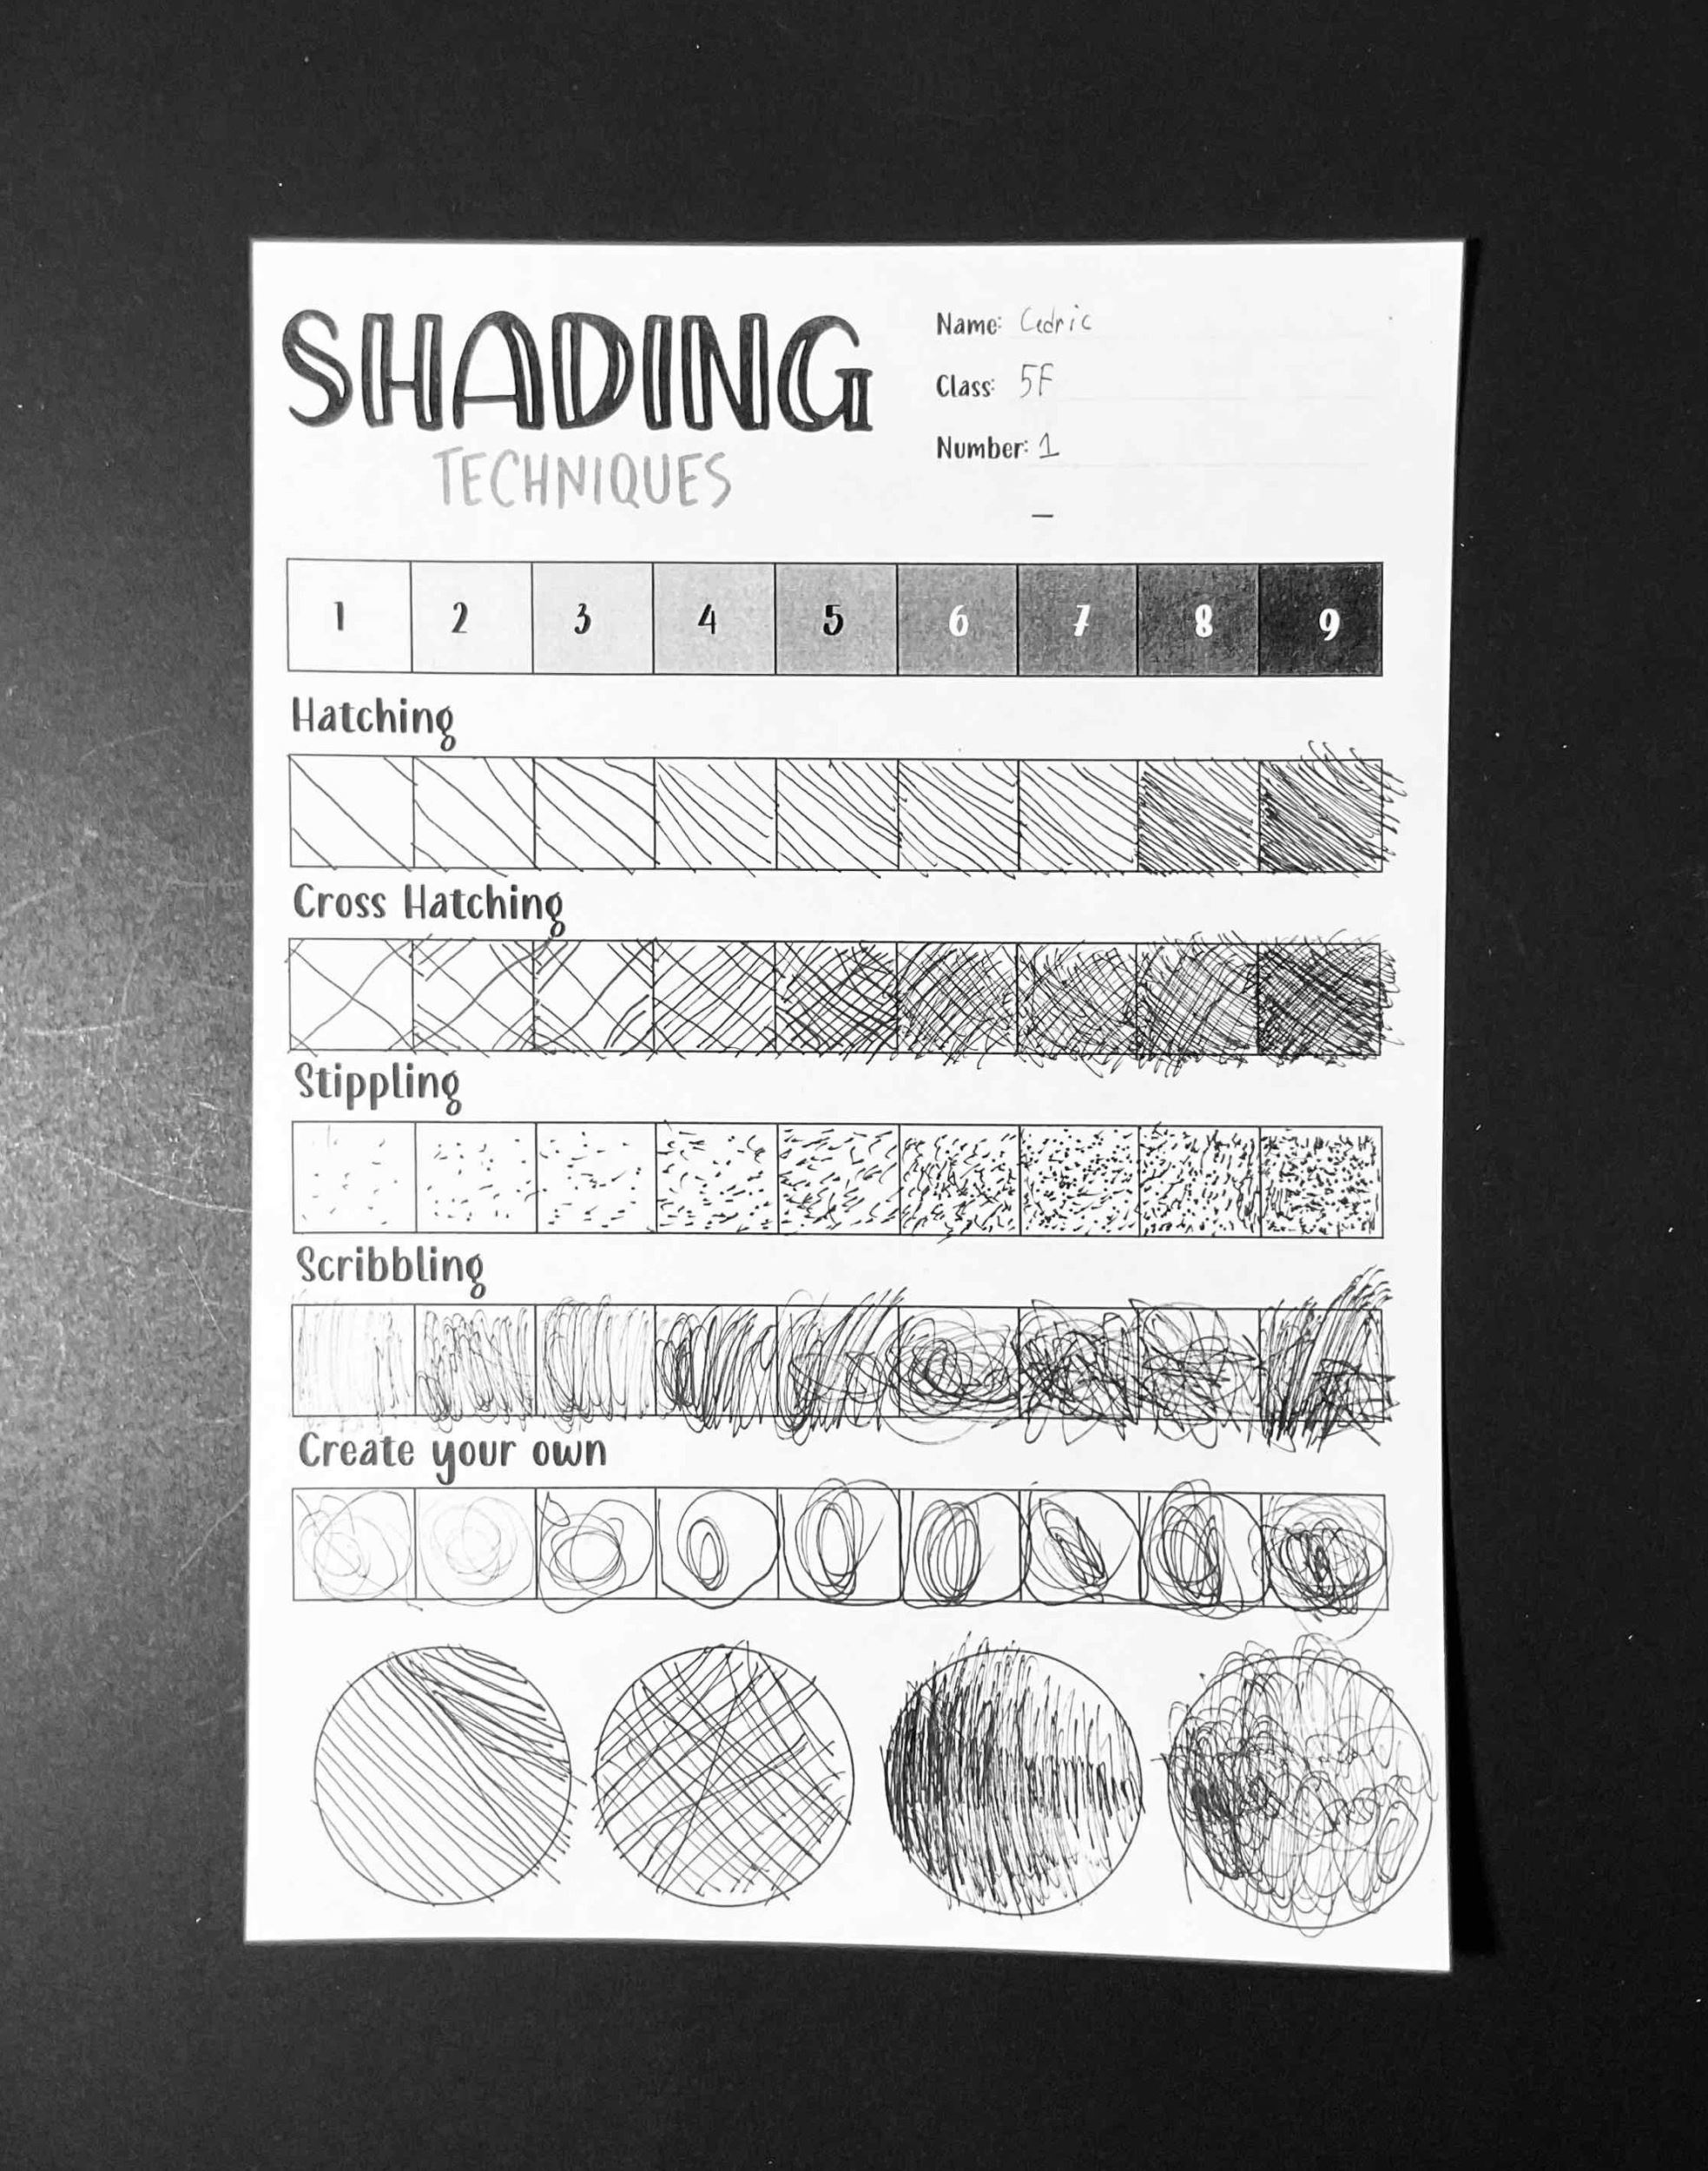 SHADING
TECHNIQUES
Name: Cedric
Class: 5F
Number: 1
1 2 3 4 5 6 7 8 9
Hatching
Cross Hatching
Stippling
Scribbling
Create your own